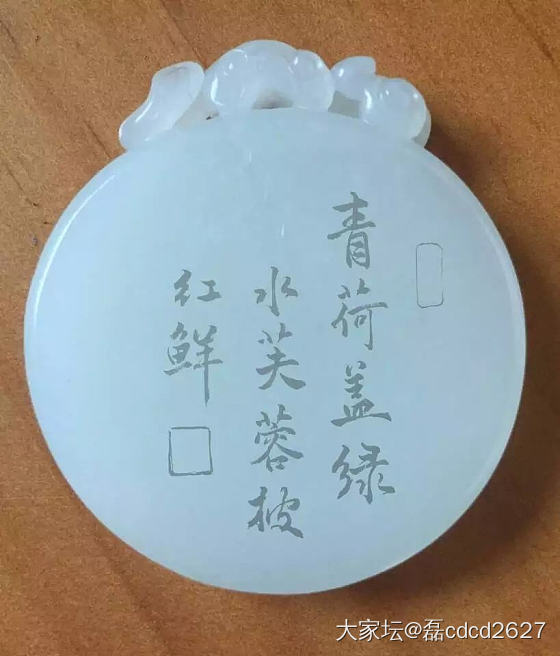 青荷盖绿
水芙蓉披
红鲜
大家坛@磊cdcd2627